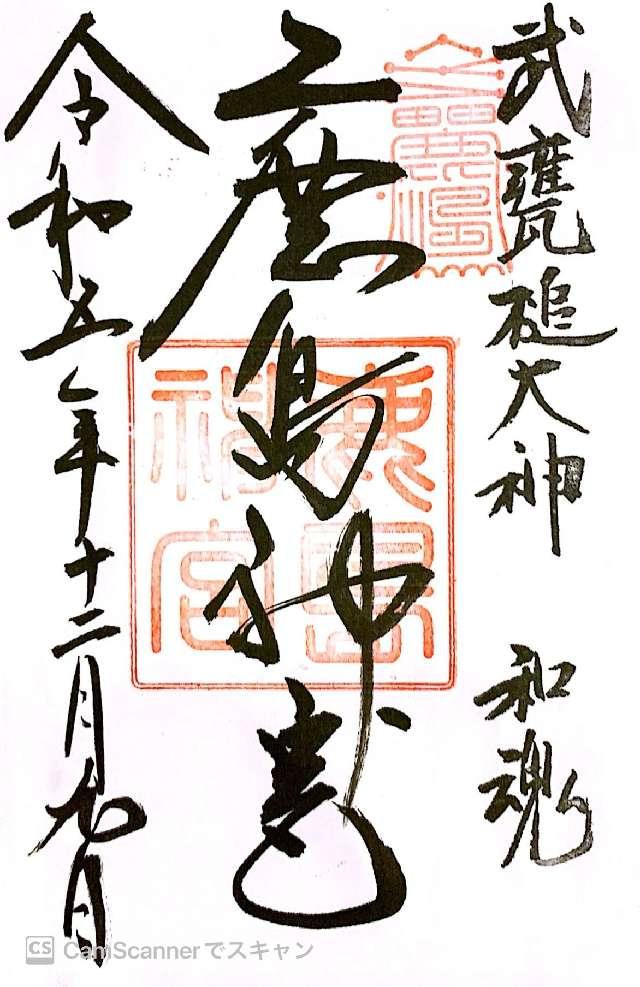 武甕槌大神　和魂
鹿島神宮
鹿島
神宮
令和五年十二月九日
CS CamScannerでスキャン